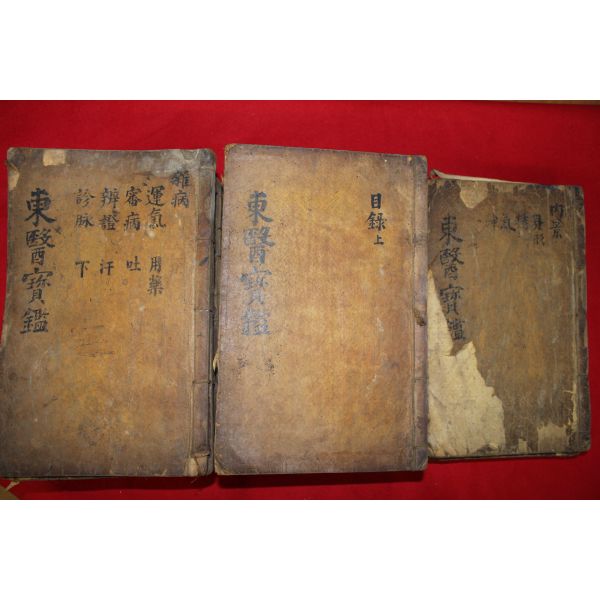 雜病
運氣 用藥
審病 吐
辨證 汗
診脉 下
東醫寶鑑
目錄上
東醫寶鑑
内景
身形
精
氣
神
東醫寶鑑